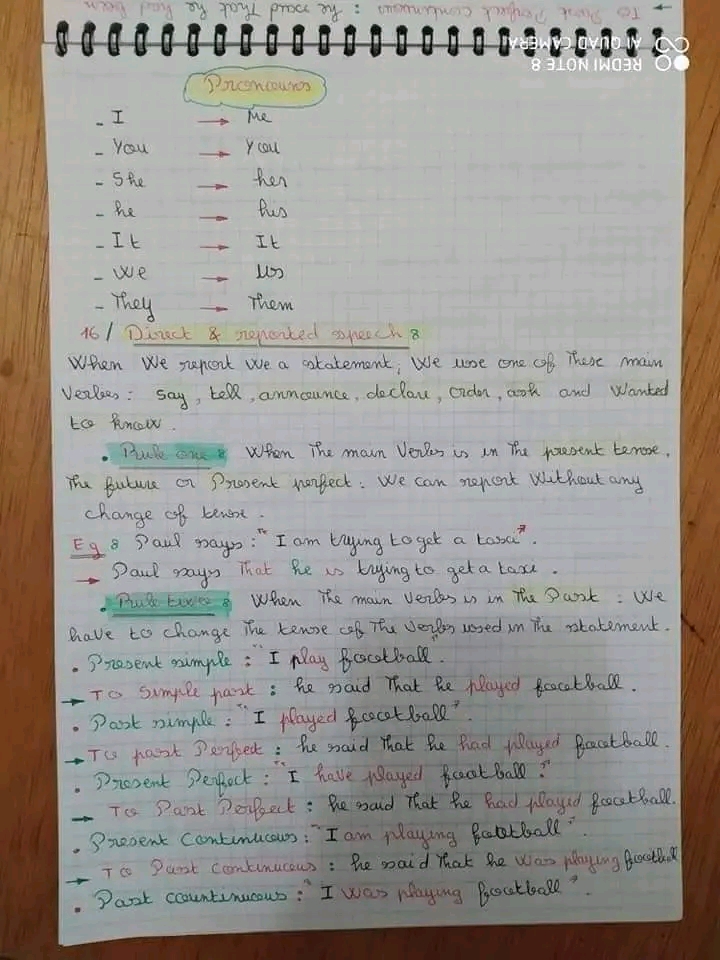 ← To Past Perfect continuous : he said That he had been
REDMI NOTE 8
AI QUAD CAMERA
Pronouns
- I → Me
- You → You
- She → her
- he → his
- It → It
- We → Us
- They → Them
16 / Direct & reported speech :
When We report We a statement, We use one of These main
Verbes : say, tell, announce, declare, order, ask and Wanted
to know.
• Rule one : When The main Verbes is in The present tense,
The future or Present perfect : We can report Without any
change of tense.
Eg : Paul says : "I am trying to get a taxi".
→ Paul says That he is trying to get a taxi.
• Rule two : When The main Verbes is in The Past : We
have to change The tense of The Verbes used in The statement.
• Present simple : "I play football".
→ To Simple past : he said That he played football.
• Past simple : "I played football".
→ To past Perfect : he said That he had played football.
• Present Perfect : "I have played football".
→ To Past Perfect : he said That he had played football.
• Present Continuous : "I am playing football".
→ To Past continuous : he said That he was playing football
• Past countinuous : "I was playing football".